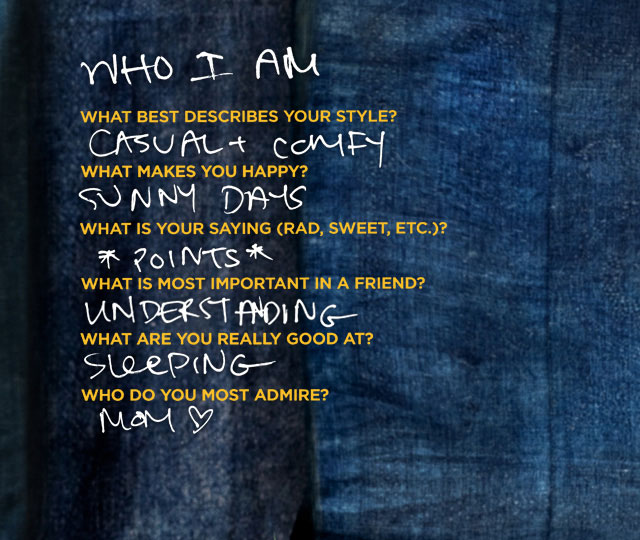 WHO I AM
WHAT BEST DESCRIBES YOUR STYLE?
CASUAL + COMFY
WHAT MAKES YOU HAPPY?
SUNNY DAYS
WHAT IS YOUR SAYING (RAD, SWEET, ETC.)?
* POINTS *
WHAT IS MOST IMPORTANT IN A FRIEND?
UNDERSTANDING
WHAT ARE YOU REALLY GOOD AT?
SLeePING
WHO DO YOU MOST ADMIRE?
MOM ♡